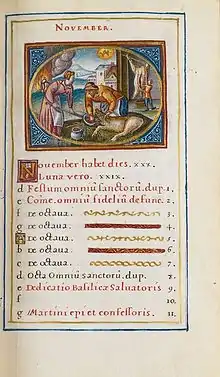 November.
November habet dies. xxx.
Luna vero. xxix.
d Festum omniū sanctorū. dup. 1.
e Come. omniū fideliū defunc. 2.
f De octava. 3.
g De octava. 4.
A De octava. 5.
b De octava. 6.
c De octava. 7.
d Octa Omniū sanctorū. dup. 8.
e Dedicatio Basilicæ Salvatoris 9.
f 10.
g Martini epi et confessoris. 11.